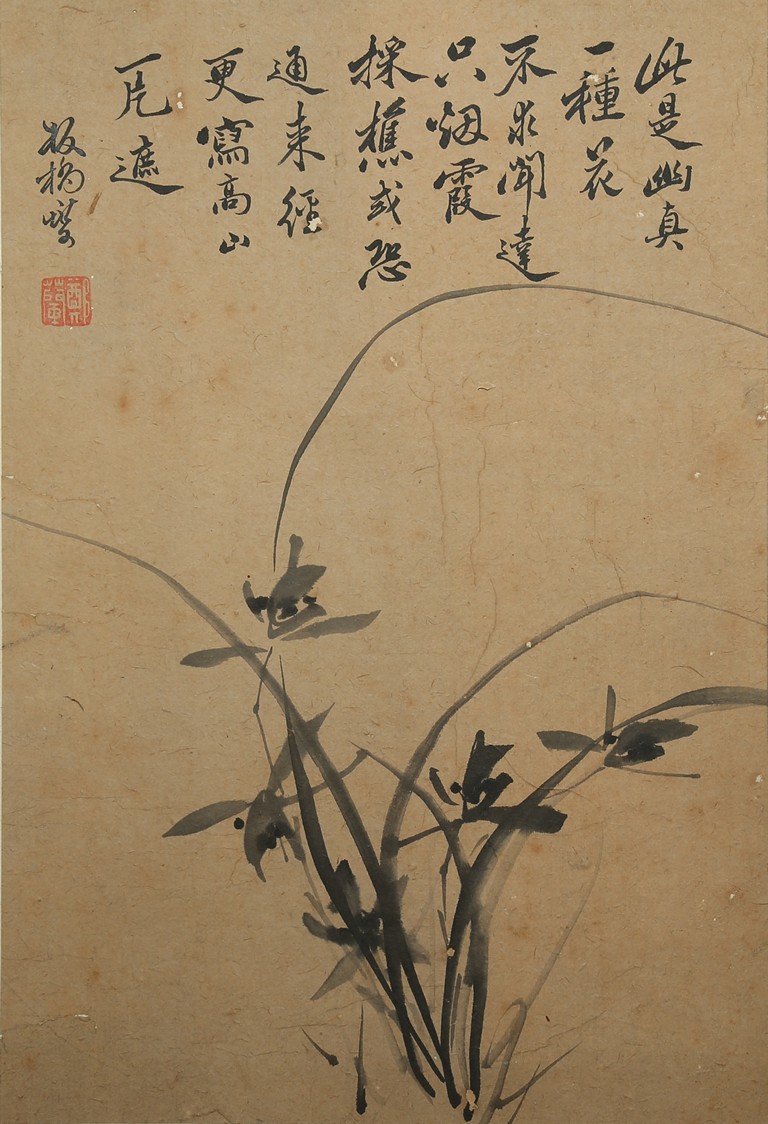 此是幽真
一種花
不求聞達
只烟霞
採樵或恐
通来徑
更寫高山
一片遮
板橋燮
鄭蘭